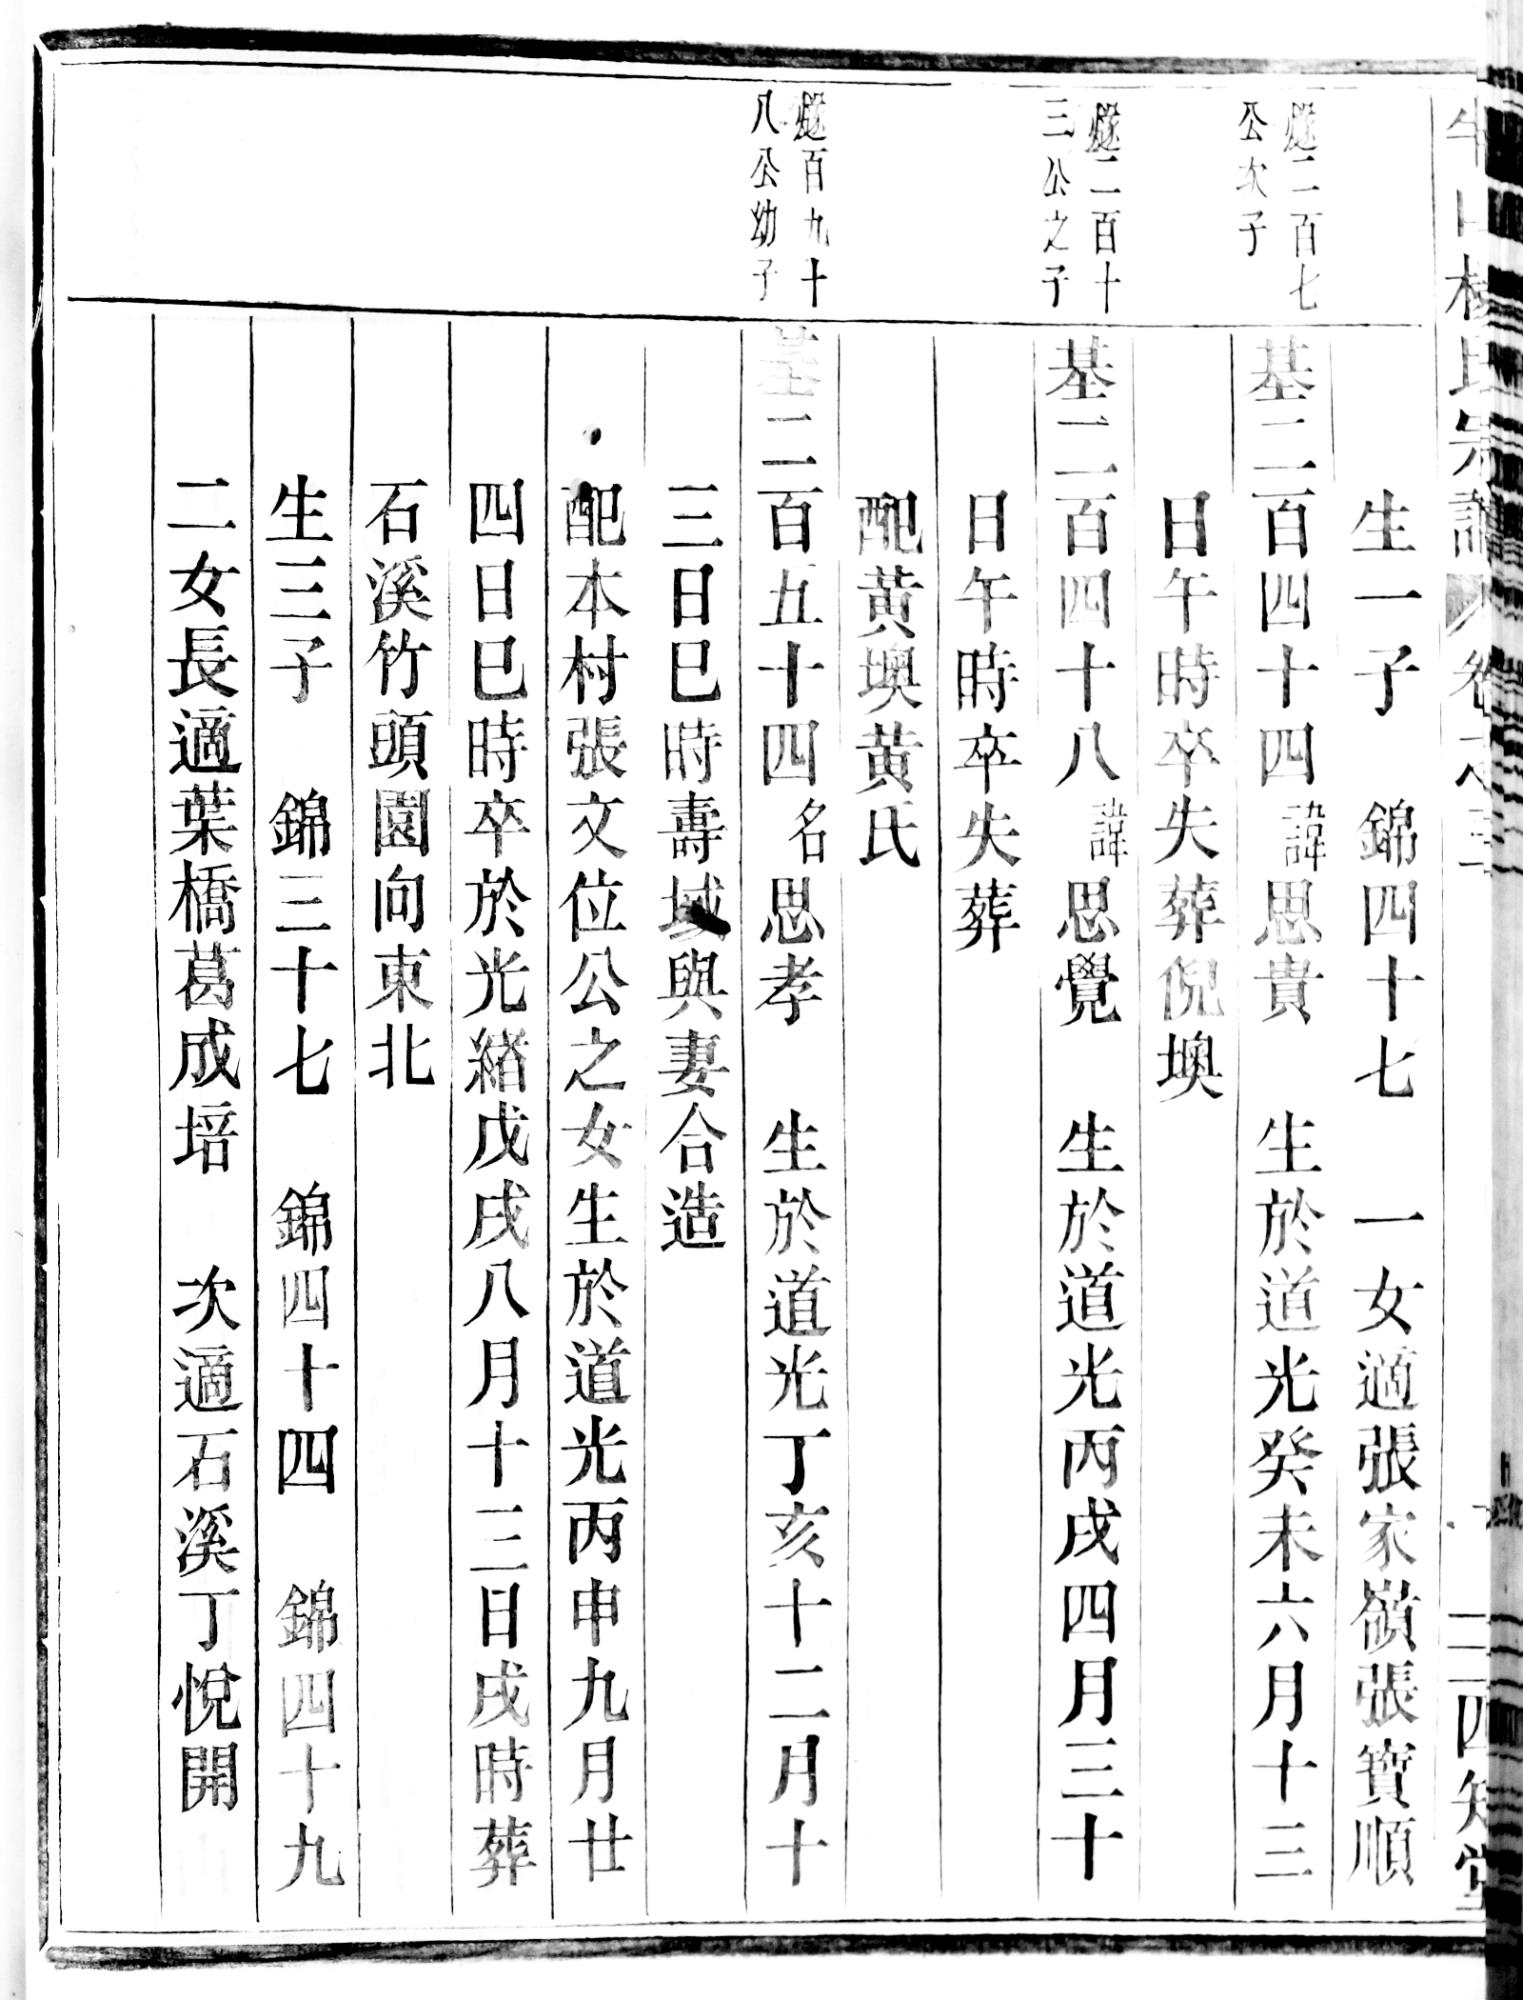 楊氏宗譜 卷之三 二 四知堂
生一子 錦四十七 一女適張家嶺張寶順
燧二百七
公次子
基二百四十四 諱思貴 生於道光癸未六月十三
日午時卒失葬倪墺
燧二百十
三公之子
基二百四十八 諱思覺 生於道光丙戌四月三十
日午時卒失葬
配黃墺黃氏
燧百九十
八公幼子
基二百五十四 名思孝 生於道光丁亥十二月十
三日巳時壽域與妻合造
配本村張文位公之女生於道光丙申九月廿
四日巳時卒於光緒戊戌八月十三日戌時葬
石溪竹頭園向東北
生三子 錦三十七 錦四十四 錦四十九
二女長適葉橋葛成培 次適石溪丁悅開